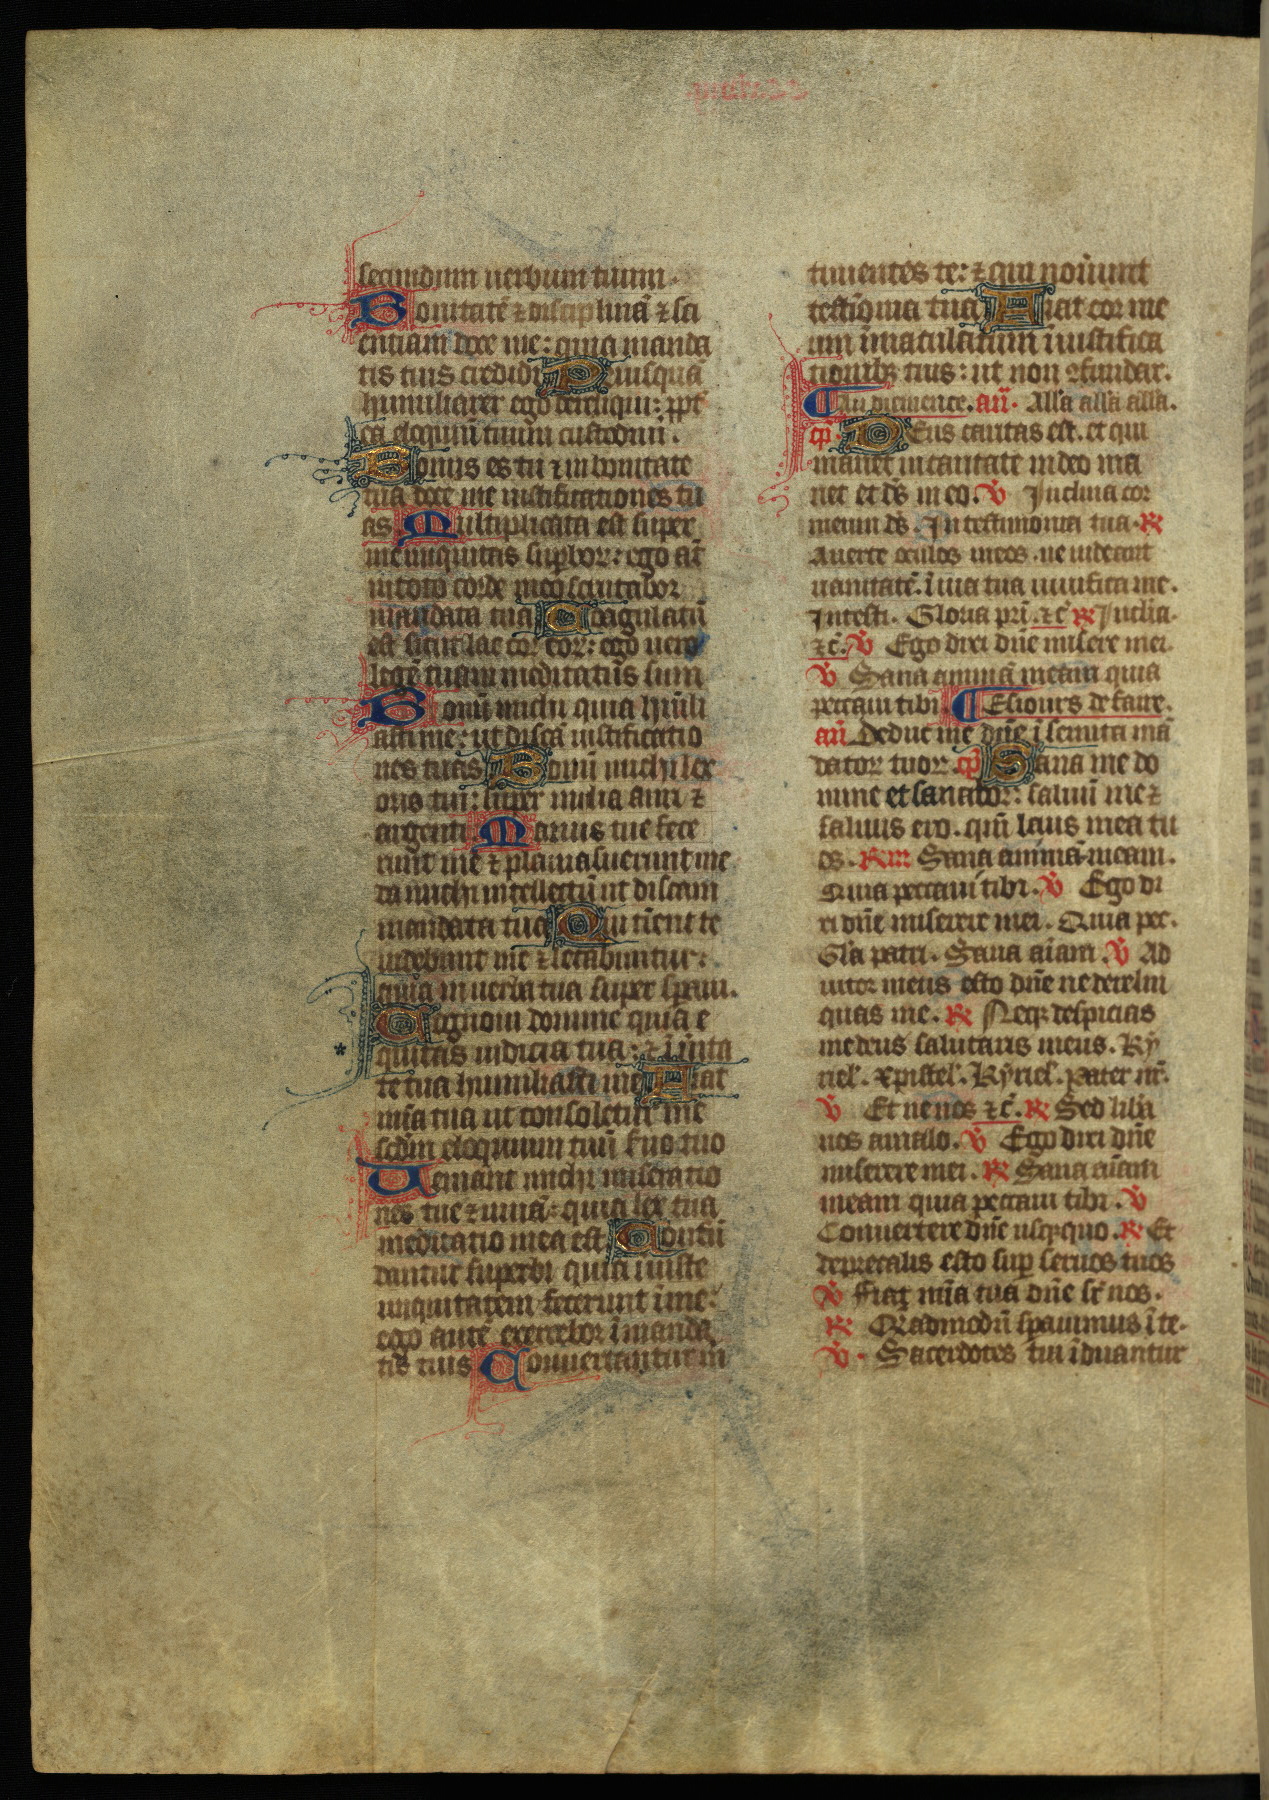 secundum uerbum tuum.
Bonitatē ⁊ disciplinā ⁊ sci
entiam doce me: quia manda
tis tuis credidi Priusquā
humiliarer ego dereliqui: ꝓpt̄
ea eloquiū tuum custodiui.
Bonus es tu ⁊ in bonitate
tua doce me iustificationes tu
as Multiplicata est super
me iniquitas suꝑbor: ego aūt
in toto corde meo scrutabor
mandata tua Coagulatū
est sicut lac cor eor: ego uero
legē tuam meditatus sum
Bonū michi quia humili
asti me: ut discā iustificatio
nes tuas Bonū michi lex
oris tui: super milia auri ⁊
argenti Manus tue fece
runt me ⁊ plasmauerunt me
da michi intellectū ut discam
mandata tua Qui timent te
uidebunt me ⁊ letabuntur:
quia in uerba tua super speraui.
Cognoui domine quia e
quitas iudicia tua: ⁊ ī ueritā
te tua humiliasti me Fiat
mīa tua ut consoletur me
scdm eloquium tuū seruo tuo
Ueniant michi miseratio
nes tue ⁊ uiuā: quia lex tua
meditatio mea est Confū
dantur superbi quia iniuste
iniquitatem fecerunt ī me:
ego autē exercebor ī manda
tis tuis Conuertantur m
timentes te: ⁊ qui nouerunt
testīonia tua Fiat cor me
um īmaculatum ī iustifica
tionibꝫ tuis: ut non ↄfundar.
an̄. All'a all'a all'a.
cp̄. Deus caritas est. et qui
manet in caritate in deo ma
net et ds̄ in eo. ℣ Inclina cor
meum ds̄. In testimonia tua. ℟
Auerte oculos meos. ne uideant
uanitatē. ī uia tua uiuifica me.
In testi. Gloria pr̄i. ⁊c̄ ℟ Inclia.
⁊c̄. ℣ Ego dixi dn̄e misere mei.
℣ Sana animā meam quia
peccaui tibi. Lectiones de fane.
an̄. Deduc me dn̄e ī semita mā
dator tuor. cp̄ Sana me do
mine et sanabor: saluū me ⁊
saluus ero. qm̄ laus mea tu
es. Sana animā meam.
Quia peccaui tibi. ℣ Ego di
xi dn̄e miserere mei. Quia pec.
Gl'a patri. Sana aīam. ℣ Ad
iutor meus esto dn̄e ne derelin
quas me. ℟ Neqꝫ despicias
me deus salutaris meus. Ky
riel'. xpistel'. Kyriel'. Pater nr̄.
℣ Et ne nos ⁊c̄. ℟ Sed libā
nos amalo. ℣ Ego dixi dn̄e
miserere mei. ℟ Sana aīam
meam quia peccaui tibi. ℣
Conuertere dn̄e usqꝫquo. ℟ Et
deprecabilis esto suꝑ seruos tuos
℣ Fiat mīa tua dn̄e sr̄ nos.
℟ Quēadmodū sperauimus ī te.
℣. Sacerdotes tui īduantur